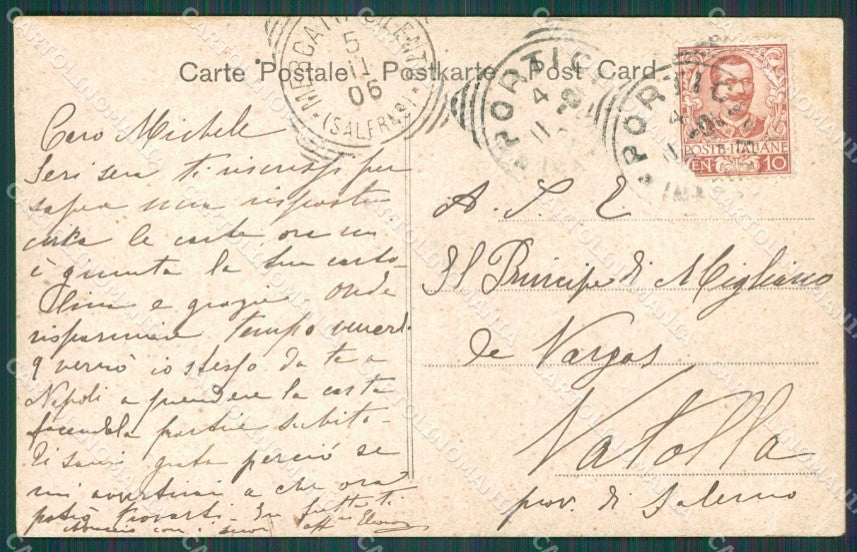 Carte Postale – Postkarte – Post Card.
MERCATO CILENTO
5
11
06
(SALERNO)
PORTICI
4
11
PORTICI
4
11
POSTE ITALIANE
CEN. 10
Caro Michele
Ieri sera ti riscrissi per
sapere una risposta
circa le carte ora mi
è giunta la tua carto-
lina e grazie onde
risparmiare tempo venerdì
9 verrò io stesso da te a
Napoli a prendere la carta
facendola partire subito.
Ti sarei grata perciò se
mi avvertirai a che ora
potrò trovarti. In fretta ti
A. S. E
Il Principe di Migliano
de Vargas
Vatolla
prov. di Salerno
CARTOLINOMANIA